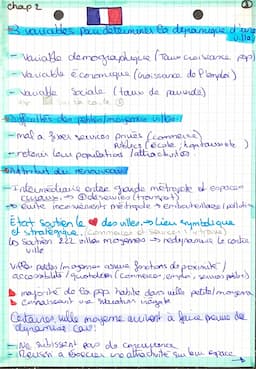 chap 2
3 variables pour déterminer la dynamique d'une ville
- Variable démographique (Taux croissance pop)
- Variable économique (croissance de l'emploi)
- Variable sociale (taux de pauvreté)
difficultés des petites/moyennes villes
- mal à fixer services privés (commerce)
publics (école, hôpitaux)
- retenir leur population / attractivités
attribut du renouveau
- Intermédiaire entre grande métropole et espaces
ruraux → desservies (transport)
→ évite inconvénient métropole → embouteillages/pollution
État soutien le ❤ des villes → lieu symbolique
et stratégique (commerces et services)
Ils soutien 222 villes moyennes → redynamiser le centre
ville
ville petites/moyennes assure fonctions de proximité /
accessibilité / quotidien (commerces, emplois, services publics)
majorité de la pop habite dans villes petites/moyennes
connaissent une situation inégale
Certaines ville moyenne arrivent à faire preuve de
dynamisme car:
- Ne subissent pas de concurrence
- Réussi à asseoir une attractivité sur leur espace